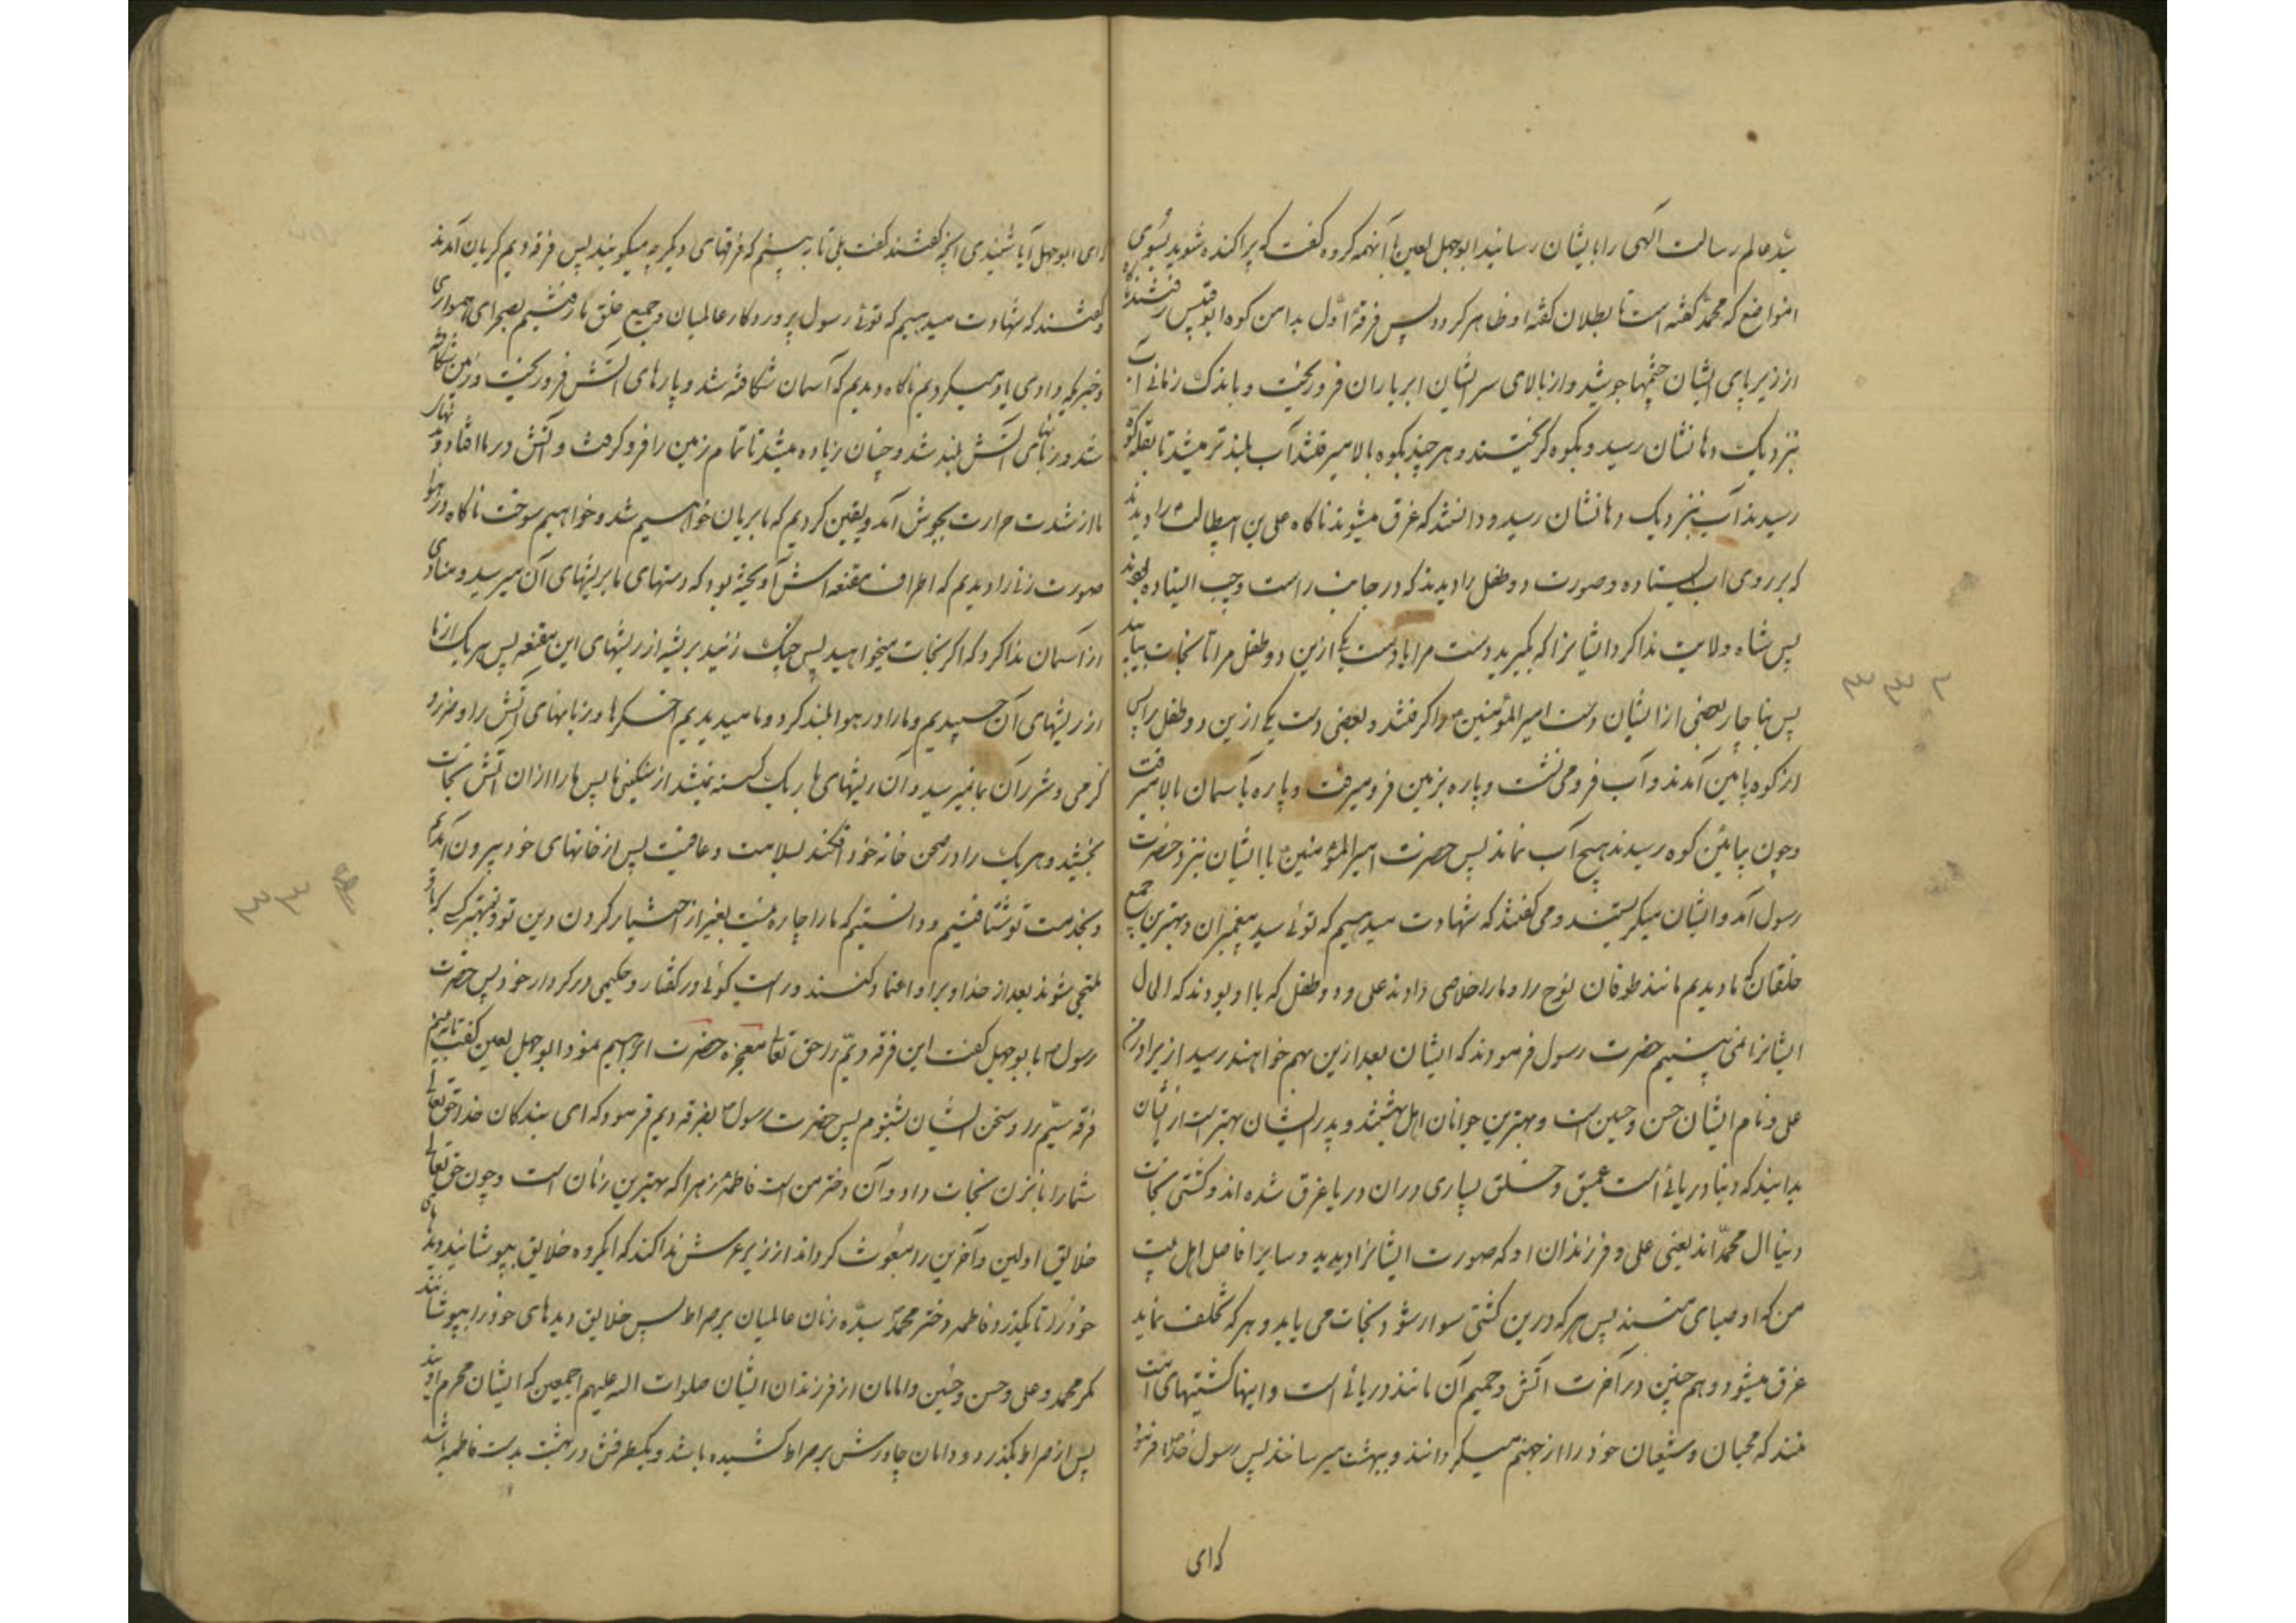 سید عالم رسالت الهی را بایشان رسانید ابوجهل لعین با آنهمه کروه کفت که پراکنده شوید بسوی
انمواضع که محمد کفته است تا بطلان کفته او ظاهر کردد پس فرقهٔ اول بدامن کوه ابوقبیس رفتند ناکاه
از زیر پای ایشان چشمها جوشید و از بالای سر ایشان ابر باران فرو ریخت و باندک زمانی آب
بنزدیک دهانشان رسید و بکوه کریختند و هر چند بکوه بالا میرفتند آب بلندتر میشد تا بقلهٔ کوه
رسیدند آب بنزدیک دهانشان رسید و دانستند که غرق میشوند ناکاه علی بن ابیطالب را دیدند
که بر روی آب ایستاده و صورت دو طفل را دیدند که در جانب راست و چپ ایستاده بودند
پس شاه ولایت ندا کرد ایشانرا که بکیرید دست مرا یا دست یکی ازین دو طفل مرا تا نجات بیابید
پس بناچار بعضی از ایشان دست امیرالمؤمنین را کرفتند و بعضی دست یکی ازین دو طفل را پس
از کوه پائین آمدند و آب فرو می نشت و پاره بزمین فرو میرفت و پاره بآسمان بالا میرفت
و چون بپائین کوه رسیدند هیچ آب نماند پس حضرت امیرالمؤمنین با ایشان بنزد حضرت
رسول آمد و ایشان میکریستند و می کفتند که شهادت میدهیم که توئی سید پیغمبران و بهترین جمیع
خلقان ما دیدیم مانند طوفان نوح را و ما را خلاصی دادند علی و دو طفل که با او بودند که الحال
ایشانرا نمی بینیم حضرت رسول فرمودند که ایشان بعد ازین بهم خواهند رسید از برادرم
علی و نام ایشان حسن و حسین است و بهترین جوانان اهل بهشتند و پدر ایشان بهتر است از ایشان
بدانید که دنیا دریائی است عمیق و خلق بسیاری در ان دریا غرق شده اند و کشتی نجات
دنیا آل محمد اند یعنی علی و فرزندان او که صورت ایشانرا دیدید و سایر افاضل اهل بیت
من که اوصیای منند پس هر که درین کشتی سوار شود نجات می یابد و هر که تخلف نماید
غرق میشود و هم چنین در آخرت آتش و حمیم آن مانند دریائی است و اینها کشتیهای امت
منند که محبان و شیعان خود را از جهنم میکذرانند و ببهشت میرسانند پس رسول خدا فرمود
که ای
که ای ابوجهل آیا شنیدی آنچه کفتند کفت بلی تا ببینم که فرقهای دیکر چه میکویند پس فرقه دیم کریان آمدند
و کفتند که شهادت میدهیم که توئی رسول پروردکار عالمیان و بهترین جمیع خلق ما رفتیم بصحرای همواری
و خبریکه دادی یاد میکردیم ناکاه دیدیم که آسمان شکافته شد و پارهای آتش فرو ریخت و زمین شکافته
شد و زبانهای آتش بلند شد و چنان زیاده میشد تا تمام زمین را فرو کرفت و آتش در ما افتاد و بدنهای
ما از شدت حرارت بجوش آمد و یقین کردیم که ما بریان خواهیم شد و خواهیم سوخت ناکاه در هوا
صورت زنی را دیدیم که اطراف مقنعه اش آویخته بود که دستهای ما بریشهای آن میرسید و منادی
از آسمان ندا کرد که اکر نجات میخواهید پس چنک زنید بریشه از ریشهای این مقنعه پس هر یک از ما
از ریشهای آن چسپیدیم و ما را در هوا بلند کرد و ما میدیدیم اخکرها و زبانهای آتش را و ضرر
کرمی و شرر آن بما نمیرسید و آن ریشهای باریک کسسته نمیشد از سنکینی ما پس ما را از ان آتش نجات
بخشید و هر یک را در صحن خانه خود افکند بسلامت و عافیت پس از خانهای خود بیرون آمدیم
و بخدمت تو شتافتیم و دانستیم که ما را چاره نیست بغیر از اختیار کردن دین تو و تو بهترین کسی که باو
ملتجی شوند بعد از خدا و بر او اعتماد کنند و راست کوئی در کفتار و حکیمی در کردار خود پس حضرت
رسول با بوجهل کفت این فرقه دیم را حق تعالی معجزه حضرت ابراهیم نمود ابوجهل لعین کفت تا ببینم
فرقه سیم را و سخن ایشان بشنوم پس حضرت رسول بفرقه دیم فرمود که ای بندکان خدا حق تعالی
شما را باین زن نجات داد و آن دختر من است فاطمه زهرا که بهترین زنان است و چون حق تعالی
خلایق اولین و آخرین را مبعوث کرداند از زیر عرش ندا کند که ایکروه خلایق بپوشانید دیدهای
خود را تا بکذرد فاطمه دختر محمد سیده زنان عالمیان بر صراط پس خلایق دیدهای خود را بپوشانند
مکر محمد و علی و حسن و حسین و امامان از فرزندان ایشان صلوات الله علیهم اجمعین که ایشان محرم اویند
پس از صراط بکذرد و دامان چادرش بر صراط کشیده باشد و یکطرفش در بهشت بدست فاطمه باشد